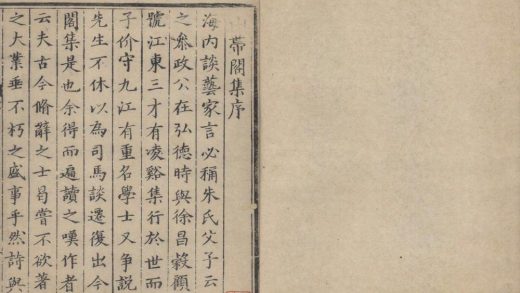 山帶閣集序
海內談藝家言必稱朱氏父子云
之叅政公在弘德時與徐昌榖顧
號江東三才有凌谿集行於世而
子价守九江有重名學士又爭説
先生不休以為司馬談遷復出今
閣集是也余得而遍讀之嘆作者
云夫古今脩辭之士曷嘗不欲著
之大業垂不朽之盛事乎然詩與